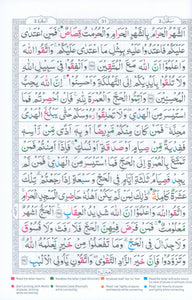 سيقول ٢
31
البقرة ٢
اَلشَّهْرُ الْحَرَامُ بِالشَّهْرِ الْحَرَامِ وَالْحُرُمٰتُ قِصَاصٌ فَمَنِ اعْتَدٰى
عَلَيْكُمْ فَاعْتَدُوْا عَلَيْهِ بِمِثْلِ مَا اعْتَدٰى عَلَيْكُمْ وَاتَّقُوا اللّٰهَ
وَاعْلَمُوْٓا اَنَّ اللّٰهَ مَعَ الْمُتَّقِيْنَ وَاَنْفِقُوْا فِيْ سَبِيْلِ اللّٰهِ
وَلَا تُلْقُوْا بِاَيْدِيْكُمْ اِلَى التَّهْلُكَةِ وَاَحْسِنُوْا اِنَّ اللّٰهَ
يُحِبُّ الْمُحْسِنِيْنَ وَاَتِمُّوا الْحَجَّ وَالْعُمْرَةَ لِلّٰهِ فَاِنْ اُحْصِرْتُمْ فَمَا
اسْتَيْسَرَ مِنَ الْهَدْيِ وَلَا تَحْلِقُوْا رُءُوْسَكُمْ حَتّٰى يَبْلُغَ الْهَدْيُ
مَحِلَّهٗ فَمَنْ كَانَ مِنْكُمْ مَّرِيْضًا اَوْ بِهٖٓ اَذًى مِّنْ رَّاْسِهٖ فَفِدْيَةٌ
مِّنْ صِيَامٍ اَوْ صَدَقَةٍ اَوْ نُسُكٍ فَاِذَآ اَمِنْتُمْ فَمَنْ تَمَتَّعَ
بِالْعُمْرَةِ اِلَى الْحَجِّ فَمَا اسْتَيْسَرَ مِنَ الْهَدْيِ فَمَنْ لَّمْ يَجِدْ فَصِيَامُ ثَلٰثَةِ
اَيَّامٍ فِي الْحَجِّ وَسَبْعَةٍ اِذَا رَجَعْتُمْ تِلْكَ عَشَرَةٌ كَامِلَةٌ
ذٰلِكَ لِمَنْ لَّمْ يَكُنْ اَهْلُهٗ حَاضِرِي الْمَسْجِدِ الْحَرَامِ
وَاتَّقُوا اللّٰهَ وَاعْلَمُوْٓا اَنَّ اللّٰهَ شَدِيْدُ الْعِقَابِ اَلْحَجُّ اَشْهُرٌ
مَّعْلُوْمٰتٌ فَمَنْ فَرَضَ فِيْهِنَّ الْحَجَّ فَلَا رَفَثَ وَلَا فُسُوْقَ
وَلَا جِدَالَ فِي الْحَجِّ وَمَا تَفْعَلُوْا مِنْ خَيْرٍ يَّعْلَمْهُ اللّٰهُ
وَتَزَوَّدُوْا فَاِنَّ خَيْرَ الزَّادِ التَّقْوٰى وَاتَّقُوْنِ يٰٓاُولِي الْاَلْبَابِ